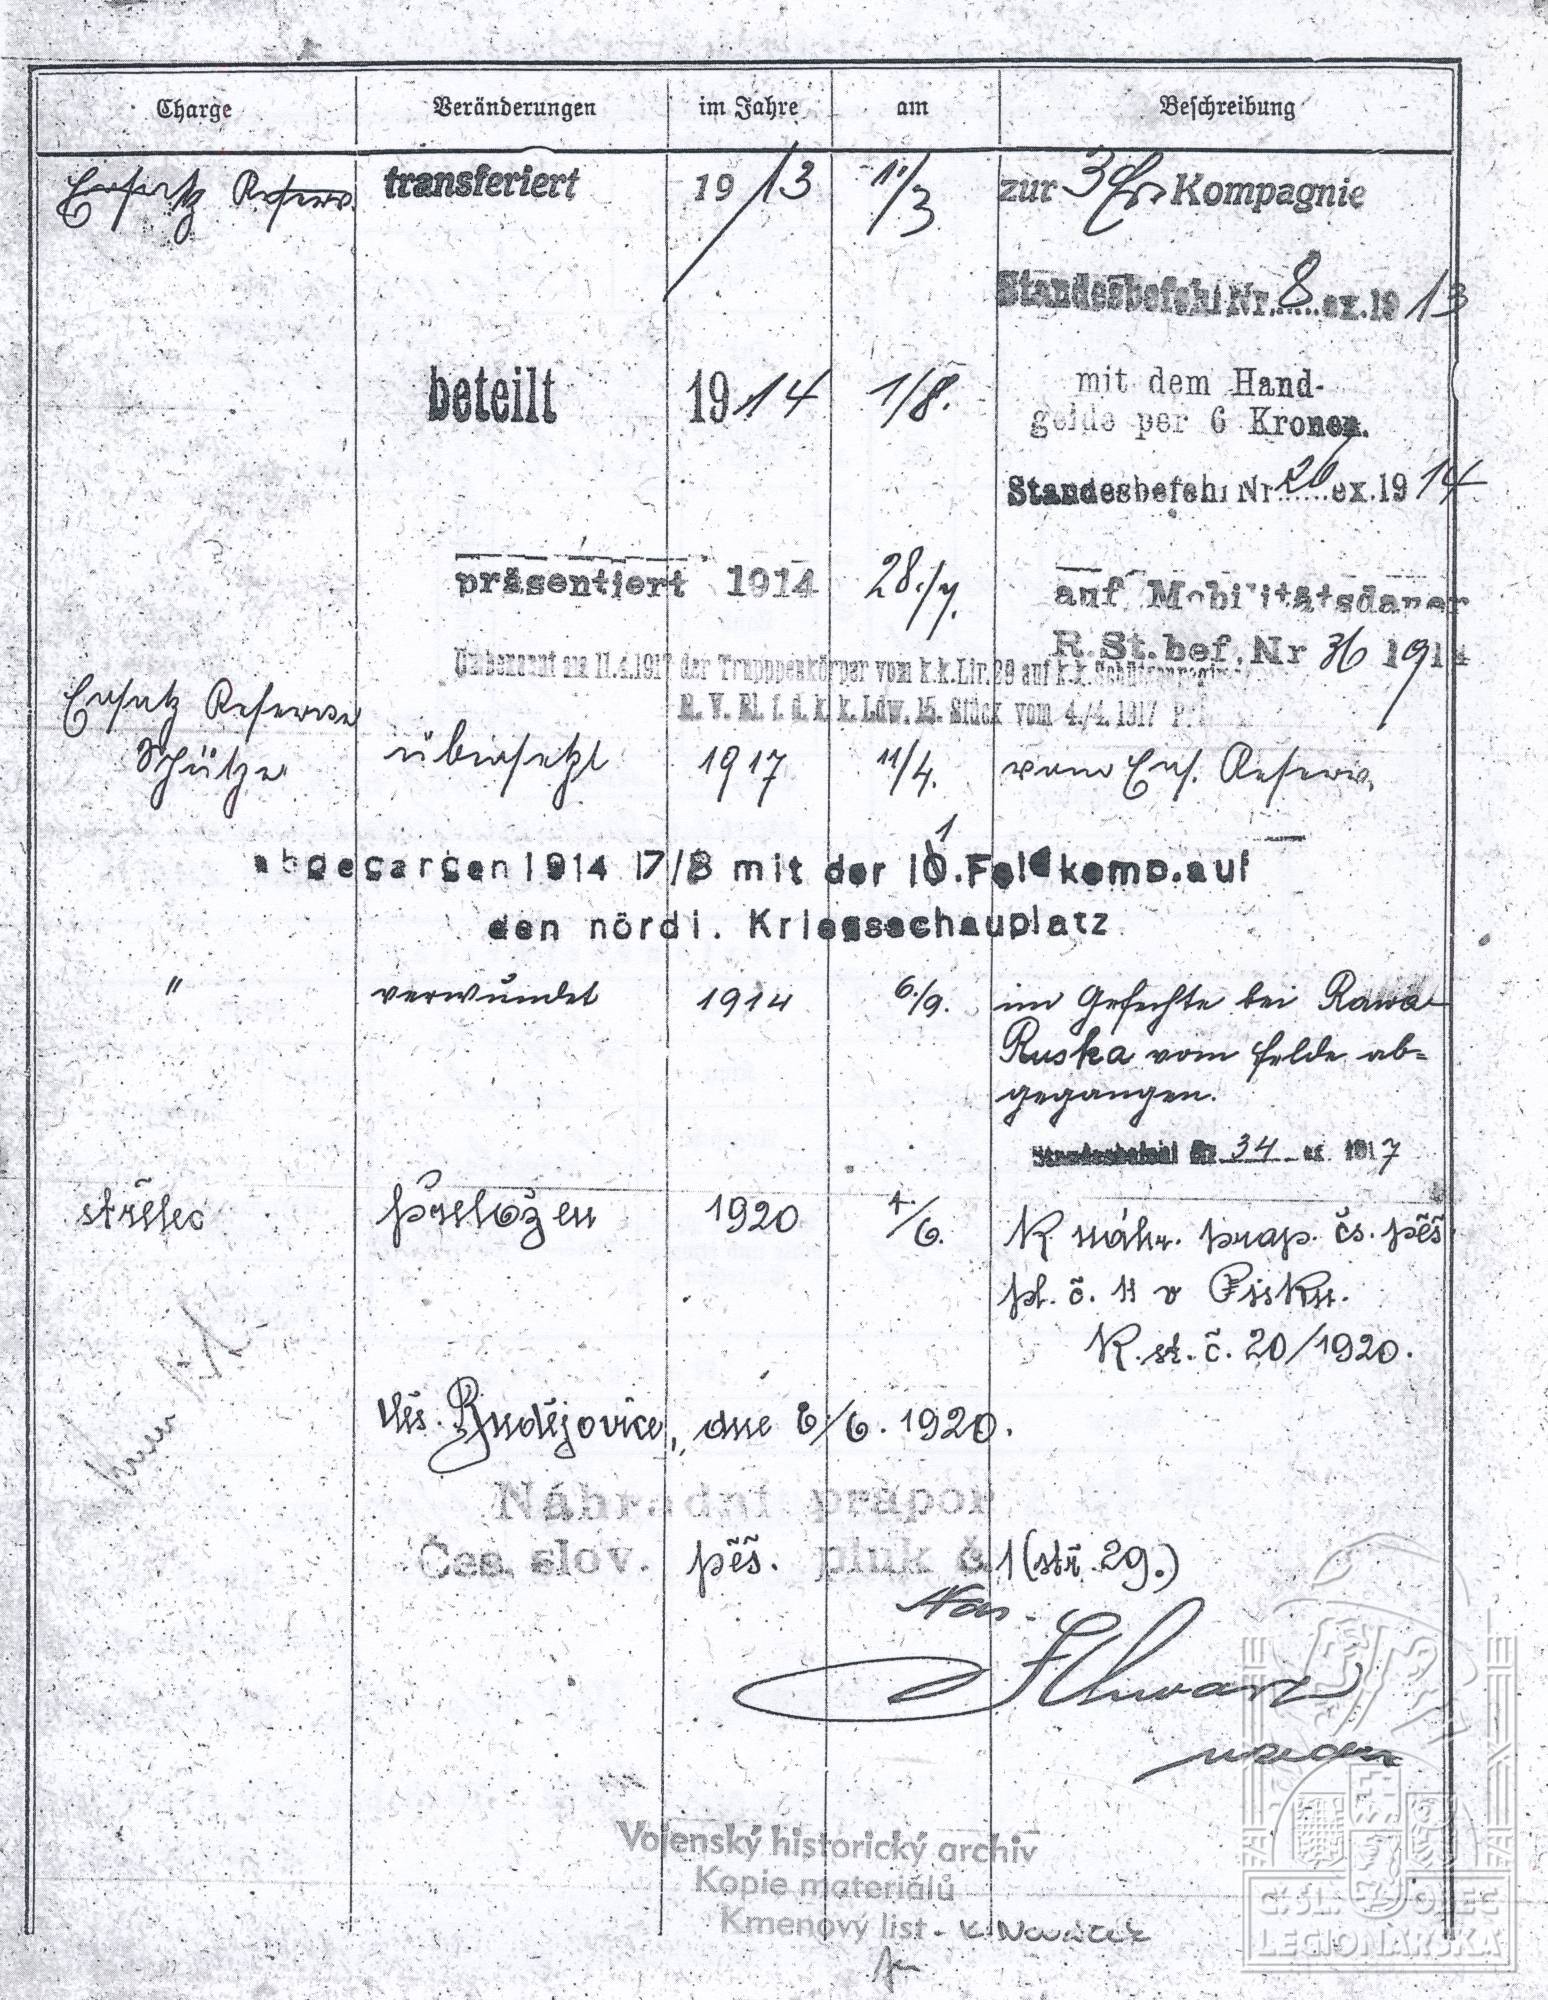 Charge Veränderungen im Jahre am Beschreibung
Ersatz Reserv. transferiert 1913 1./3 zur 3 Ers Kompagnie
Standesbefehl Nr. 8 ex. 1913
beteilt 1914 1/8. mit dem Hand-
gelde per 6 Kronen.
Standesbefehl Nr 26 ex. 1914
präsentiert 1914 28./7. auf Mobilitätsdauer
R. St. bef. Nr 36 1914
Umbenannt am 11.4.1917 der Trupppenkörper vom k.k. Lir. 29 auf k.k. Schützenregim
R. V. Bl. f. d. k. k. Ldw. 15. Stück vom 4./4. 1917
Ersatz Reserve
Schütze übersetzt 1917 11/4. vom Ers. Reserv.
abgegangen 1914 17/8 mit der 10. Feldkomp. auf
1
den nördl. Kriegsschauplatz
" verwundet 1914 6./9. im Gefechte bei Rawa-
Ruska vom Felde ab=
gegangen.
Standesbefehl Nr 34 ex 1917
střelec přeložen 1920 4/6. K náhr. prap. čs. pěš
pl. č. 11 v Písku.
K. st. č. 20/1920.
Čes. Budějovice, dne 8/6. 1920.
Náhradní prápor
Čes. slov. pěš. pluk č 1 (stř. 29.)
Schwarz
Vojenský historický archiv
Kopie materiálů
Kmenový list - K. Nováček
Č. SL. OBEC
LEGIONÁŘSKÁ